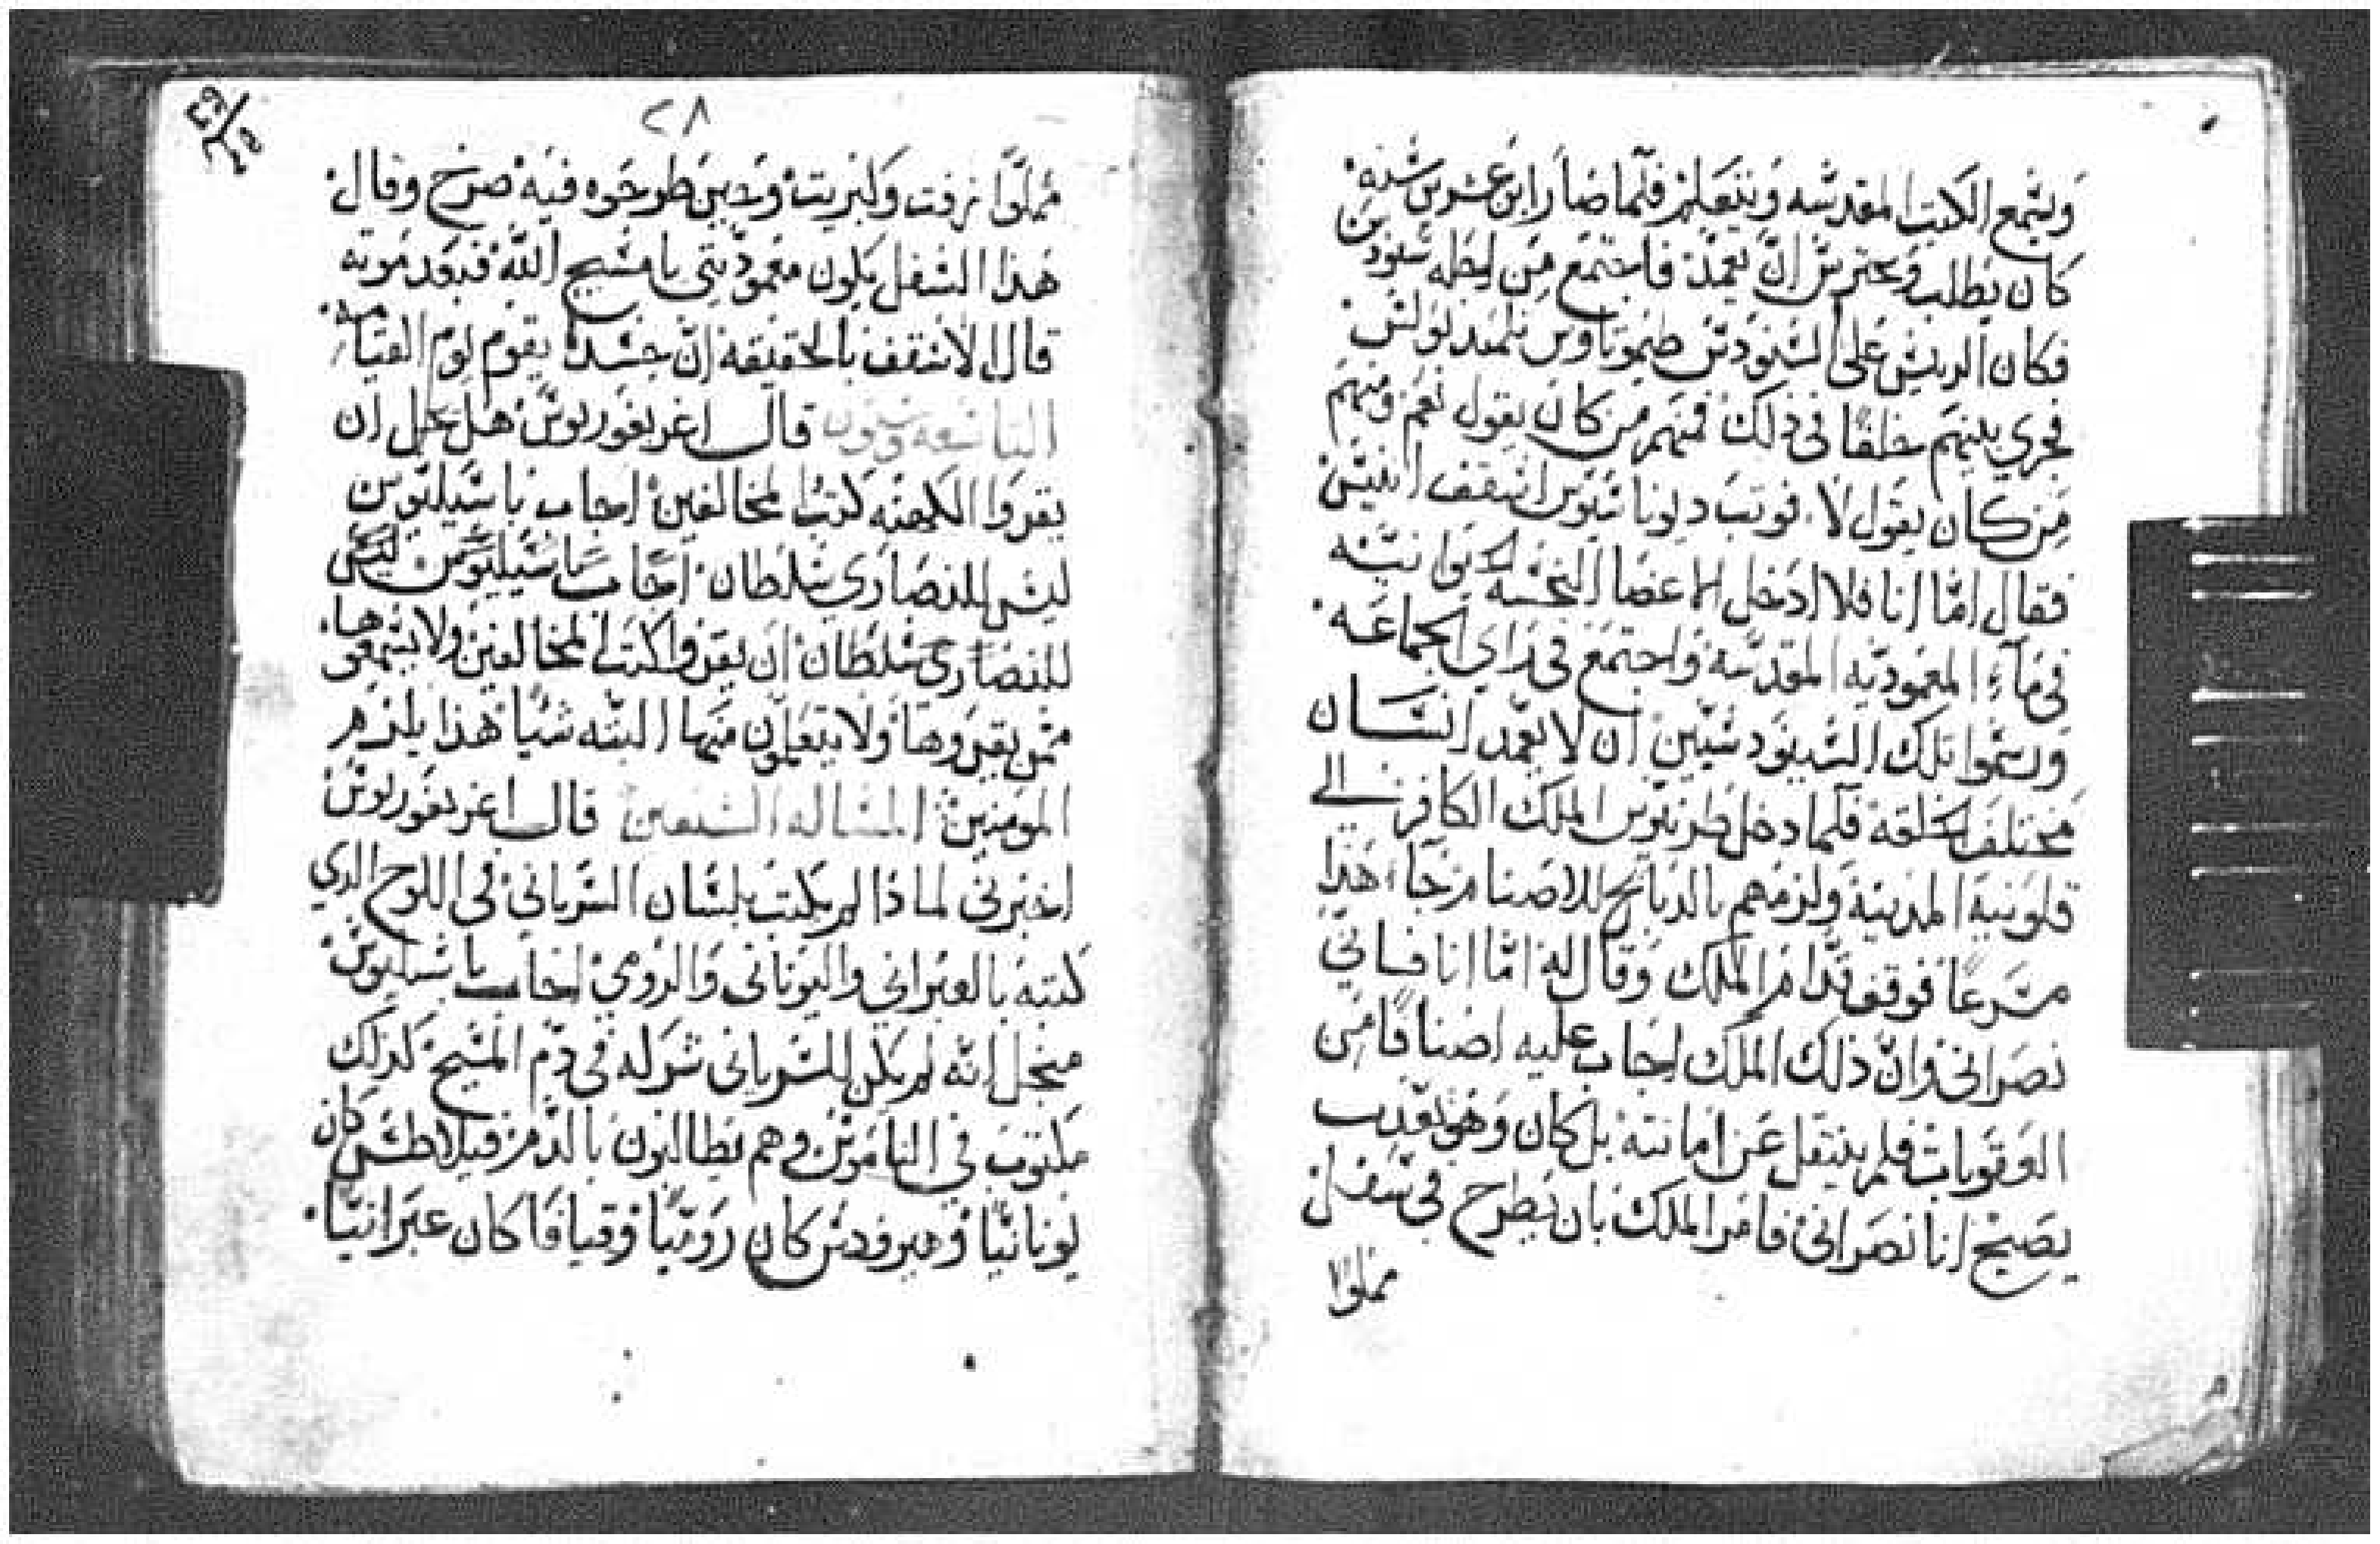 ويسمع الكتب المقدسه ويتعلم فلما صار ابن عشرين سنه
كان يطلب ويحترس ان يعمد فاجتمع من اجله سنودس
فكان الريس على السنودس طيموتاوس تلميذ بولس
فجري بينهم خلفا في ذلك فمنهم من كان يقول نعم ومنهم
من كان يقول لا، فوتب ديوناسيوس اسقف اتنيس
فقال امّا انا فلا ادخل الاعضا النجسه
في مآء المعموديه المقدسه واجتمع في راي الجماعه
ورسموا تلك السينودسيين ان لا يعمد انسان
مختلف الخلقه فلما دخل طرنوس الملك الكافر الي
قلونيية المدينة ولزمهم بالدبايح للاصنام جاء هذا
مسرعًا فوقف قدام الملك وقال له امّا انا فاني
نصراني وانّ ذلك الملك اجاب عليه اصنافًا من
العقوبات فلم ينتقل عن امانته بل كان وهو يعذب
يصيح انا نصراني فامر الملك بان يطرح في سفل
مملوًا
٢٨
مملوًا زفت وكبريت وحين طرحوه فيه صرخ وقال
هذا السفل يكون معموديتي يا مسيح الله فبعد موته
قال الاسقف بالحقيقه انّ جسده يقوم يوم القيامه
التاسعه وستون قال اغريغوريوس هل يحل ان
يقروا الكهنه كتب المخالفين اجاب باسيليوس
ليس للنصاري سلطان اجاب باسيليوس ليس
للنصاري سلطان ان يقروا كتب المخالفين ولا يسمعوها
ممن يقروها ولا يتعلمون منها البته شيًا هذا يلزم
المومنين المساله السبعين قال اغريغوريوس
اخبرني لماذا لم يكتب بلسان السرياني في اللوح الدي
كتبه بالعبراني واليوناني والرومي اجاب باسيليوس
منجل انّه لم يكن للسرياني شركه في دم المسيح كذلك
مكتوب في الناموس وهم يطالبون بالدم فبيلاطس كان
يونانيًا وهيرودس كان روميًا وقيافا كان عبرانيًا